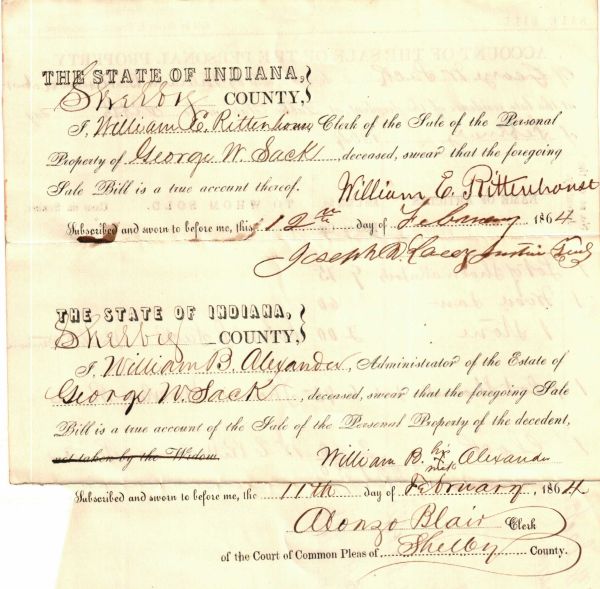 THE STATE OF INDIANA,
Shelby COUNTY,
I, William E. Rittenhouse Clerk of the Sale of the Personal
Property of George W. Sack, deceased, swear that the foregoing
Sale Bill is a true account thereof. William E. Rittenhouse
Subscribed and sworn to before me, this 12th day of February 1864
Joseph D. Lacey
THE STATE OF INDIANA,
Shelby COUNTY,
I, William B. Alexander, Administrator of the Estate of
George W. Sack, deceased, swear that the foregoing Sale
Bill is a true account of the Sale of the Personal Property of the decedent,
not taken by the Widow. William B. his X mark Alexander
Subscribed and sworn to before me, the 11th day of February, 1864
Alonzo Blair Clerk
of the Court of Common Pleas of Shelby County.